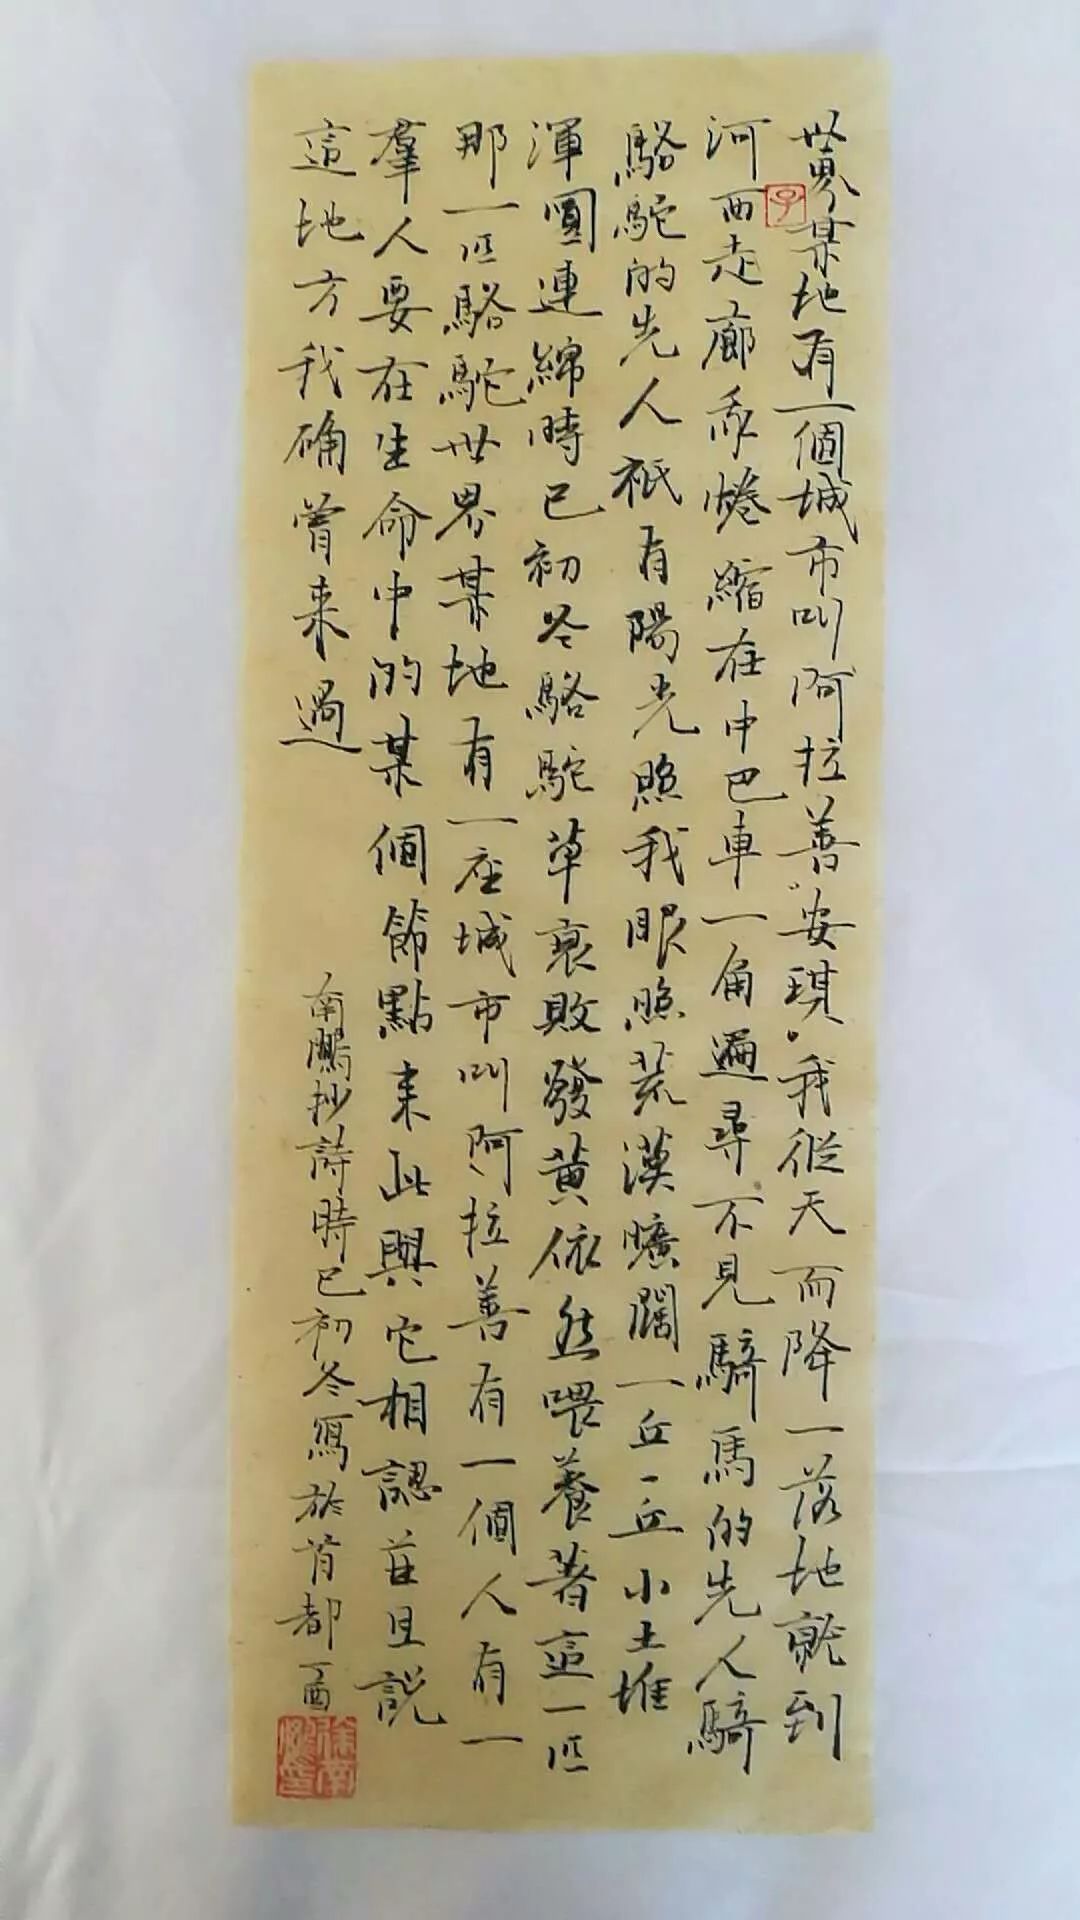 世界某地有一個城市叫阿拉善安琪。我從天而降一落地就到
河西走廊我惓縮在中巴車一角遍尋不見騎馬的先人騎
駱駝的先人祇有陽光照我眼照荒漠曠闊一丘一丘小土堆
渾圓連綿時已初冬駱駝草衰敗發黄依然喂養著這一匹
那一匹駱駝世界某地有一座城市叫阿拉善有一個人有一
羣人要在生命中的某個節點来此與它相認並且說
這地方我确曾来過
南鵬抄詩時已初冬寫於首都丁酉
子